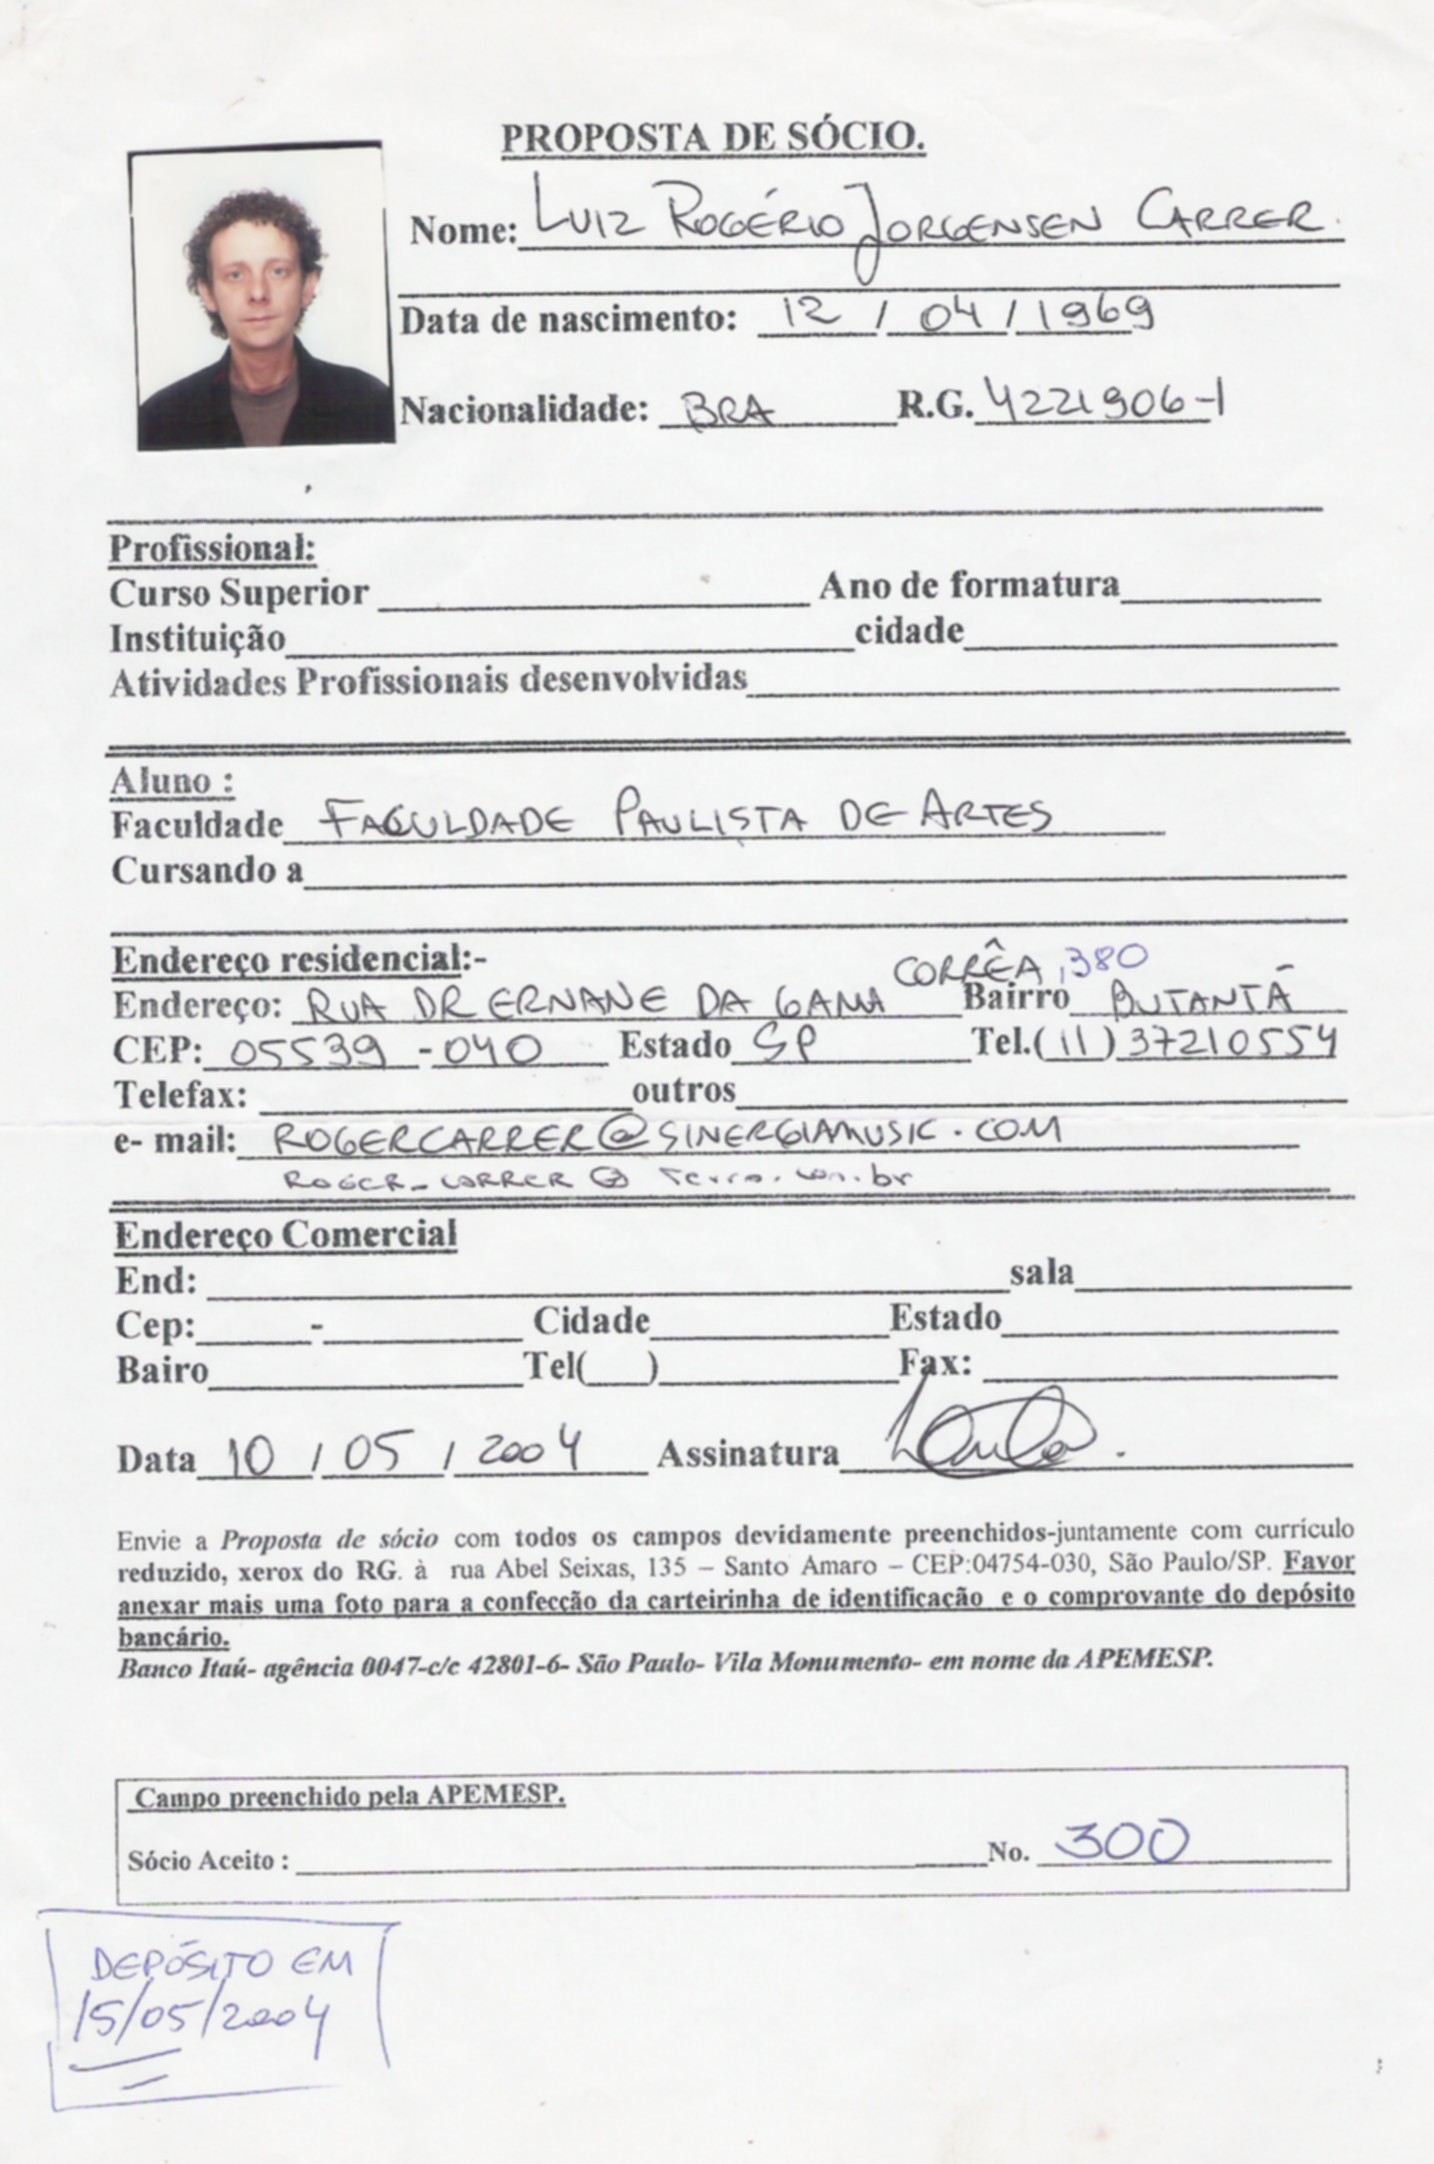 PROPOSTA DE SÓCIO.
Nome: LUIZ ROGÉRIO JORGENSEN CARRER.
Data de nascimento: 12 / 04 / 1969
Nacionalidade: BRA R.G. 4221906-1
Profissional:
Curso Superior Ano de formatura
Instituição cidade
Atividades Profissionais desenvolvidas
Aluno :
Faculdade FACULDADE PAULISTA DE ARTES
Cursando a
Endereço residencial:-
Endereço: RUA DR ERNANE DA GAMA CORRÊA, 380 Bairro BUTANTÃ
CEP: 05539 - 040 Estado SP Tel.( 11 ) 37210554
Telefax: outros
e- mail: ROGERCARRER@SINERGIAMUSIC.COM
ROGER_CARRER @ terra.com.br
Endereço Comercial
End: sala
Cep: - Cidade Estado
Bairo Tel( ) Fax:
Data 10 / 05 / 2004 Assinatura
Envie a Proposta de sócio com todos os campos devidamente preenchidos-juntamente com currículo
reduzido, xerox do RG. à rua Abel Seixas, 135 – Santo Amaro – CEP:04754-030, São Paulo/SP. Favor
anexar mais uma foto para a confecção da carteirinha de identificação e o comprovante do depósito
bancário.
Banco Itaú- agência 0047-c/c 42801-6- São Paulo- Vila Monumento- em nome da APEMESP.
Campo preenchido pela APEMESP.
Sócio Aceito : No. 300
DEPÓSITO EM
15/05/2004